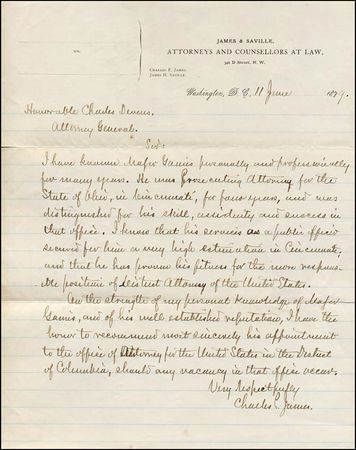 JAMES & SAVILLE,
ATTORNEYS AND COUNSELLORS AT LAW,
D Street, N. W.
vs.
CHARLES P. JAMES,
JAMES H. SAVILLE.
Washington, D. C., 11 June 1879.
Honorable Charles Devens,
Attorney General.
Sir:
I have known Major Gamis personally and professionally
for many years. He was Prosecuting Attorney for the
State of Ohio, in Cincinnati, for four years, and was
distinguished for his skill, assiduity and success in
that office. I know that his services as a public officer
secured for him a very high estimation in Cincinnati,
and that he has proven his fitness for the more respons-
ible position of District Attorney of the United States.
On the strength of my personal knowledge of Major
Gamis, and of his well established reputation, I have the
honor to recommend most sincerely his appointment
to the office of Attorney for the United States in the District
of Columbia, should any vacancy in that office occur.
Very respectfully
Charles P. James.